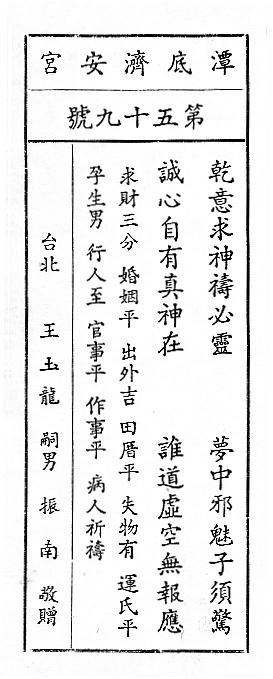 潭底濟安宮
第五十九號
乾意求神禱必靈　夢中邪魅子須驚
誠心自有真神在　誰道虛空無報應
求財三分 婚姻平 出外吉 田厝平 失物有 運氏平
孕生男 行人至 官事平 作事平 病人祈禱
台北 王玉龍 嗣男 振南 敬贈